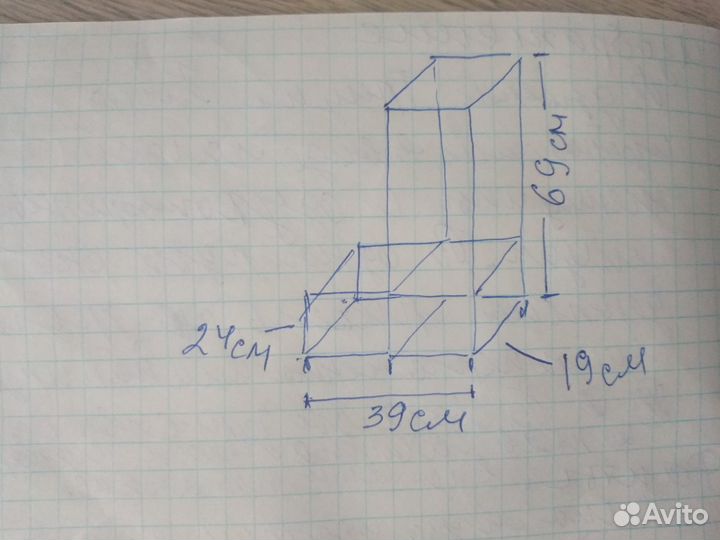 69см
24см
19см
39см
Avito